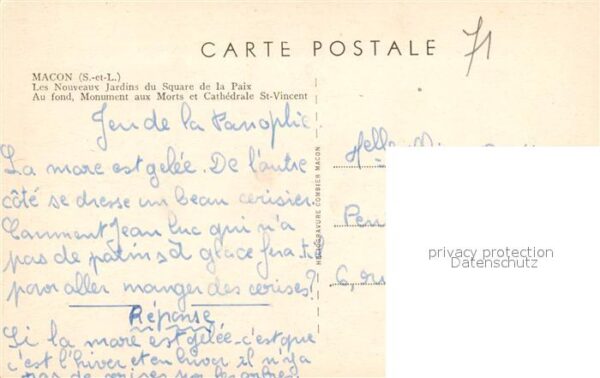 CARTE POSTALE
71
MACON (S.-et-L.)
Les Nouveaux Jardins du Square de la Paix
Au fond, Monument aux Morts et Cathédrale St-Vincent
Jeu de la Panoplie
La mare est gelée. De l'autre
côté se dresse un beau cerisier.
Comment Jean Luc qui n'a
pas de patins à glace fera-t-il
pour aller manger des cerises?
Réponse
Si la mare est gelée c'est que
c'est l'hiver et en hiver il n'y a
pas de cerises sur les arbres.
HELIOGRAVURE COMBIER MACON
privacy protection
Datenschutz